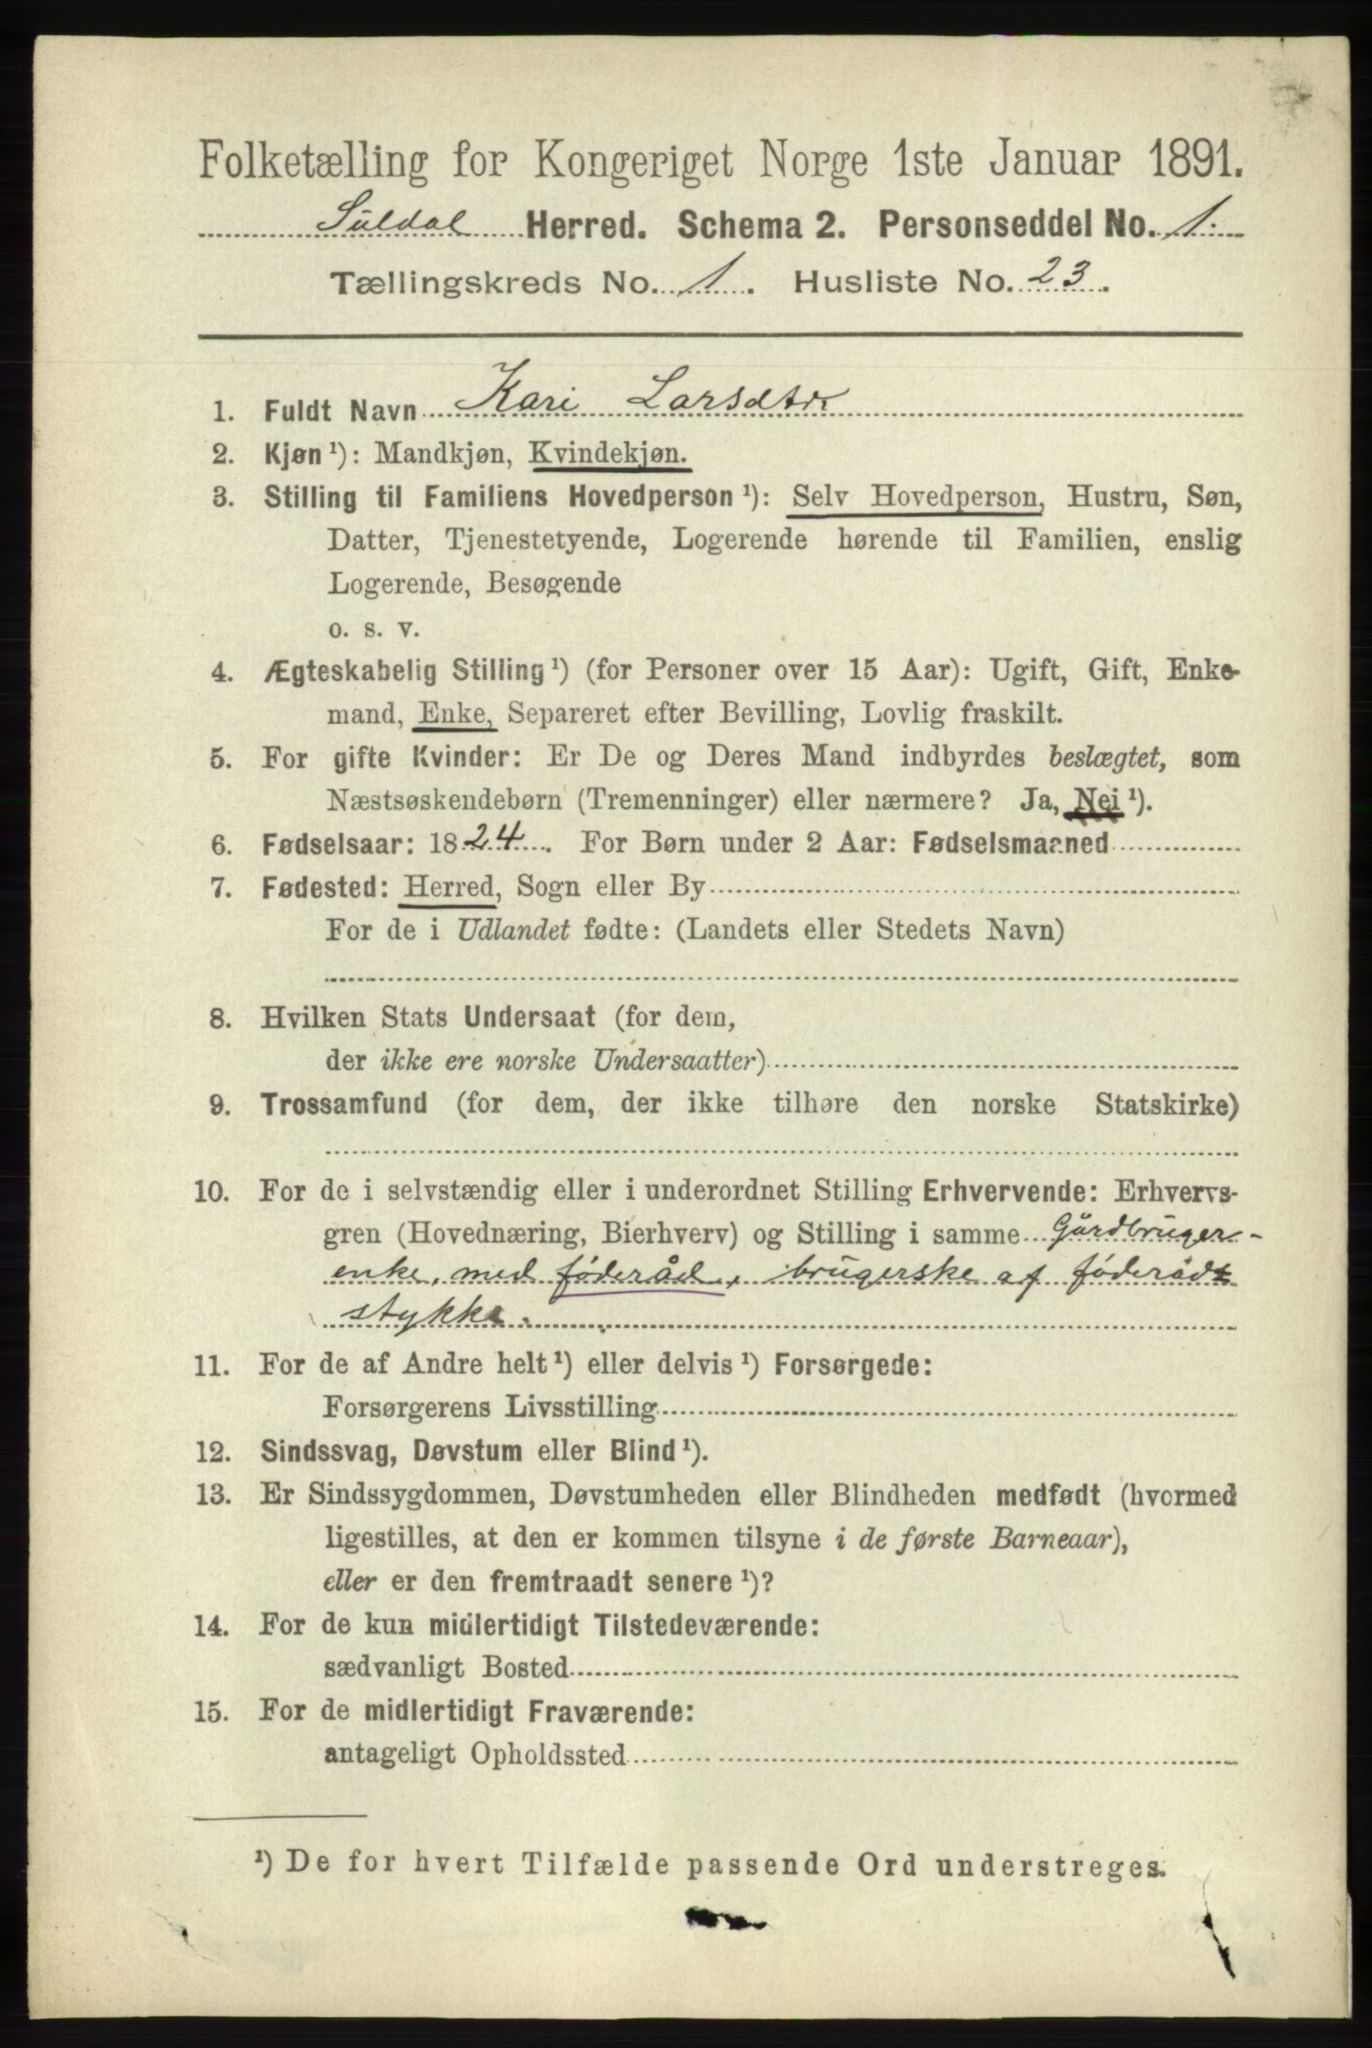 Folketælling for Kongeriget Norge 1ste Januar 1891.
Suldal Herred. Schema 2. Personseddel No. 1.
Tællingskreds No. 1. Husliste No. 23.
1. Fuldt Navn Kari Larsdtr
2. Kjøn ¹): Mandkjøn, Kvindekjøn.
3. Stilling til Familiens Hovedperson ¹): Selv Hovedperson, Hustru, Søn,
Datter, Tjenestetyende, Logerende hørende til Familien, enslig
Logerende, Besøgende
o. s. v.
4. Ægteskabelig Stilling ¹) (for Personer over 15 Aar): Ugift, Gift, Enke-
mand, Enke, Separeret efter Bevilling, Lovlig fraskilt.
5. For gifte Kvinder: Er De og Deres Mand indbyrdes beslægtet, som
Næstsøskendebørn (Tremenninger) eller nærmere? Ja, Nei ¹).
6. Fødselsaar: 1824. For Børn under 2 Aar: Fødselsmaaned
7. Fødested: Herred, Sogn eller By
For de i Udlandet fødte: (Landets eller Stedets Navn)
8. Hvilken Stats Undersaat (for dem,
der ikke ere norske Undersaatter)
9. Trossamfund (for dem, der ikke tilhøre den norske Statskirke)
10. For de i selvstændig eller i underordnet Stilling Erhvervende: Erhvervs-
gren (Hovednæring, Bierhverv) og Stilling i samme Gårdbruger-
enke, med føderåd, brugerske af føderåds
stykke.
11. For de af Andre helt ¹) eller delvis ¹) Forsørgede:
Forsørgerens Livsstilling
12. Sindssvag, Døvstum eller Blind ¹).
13. Er Sindssygdommen, Døvstumheden eller Blindheden medfødt (hvormed
ligestilles, at den er kommen tilsyne i de første Barneaar),
eller er den fremtraadt senere ¹)?
14. For de kun midlertidigt Tilstedeværende:
sædvanligt Bosted
15. For de midlertidigt Fraværende:
antageligt Opholdssted
¹) De for hvert Tilfælde passende Ord understreges.